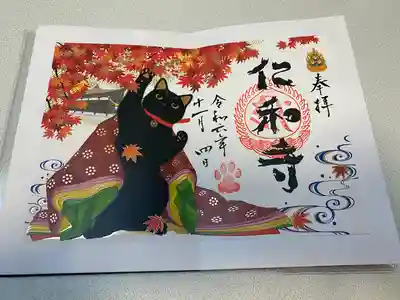 奉拝
仁和寺
令和六年
十一月 四日